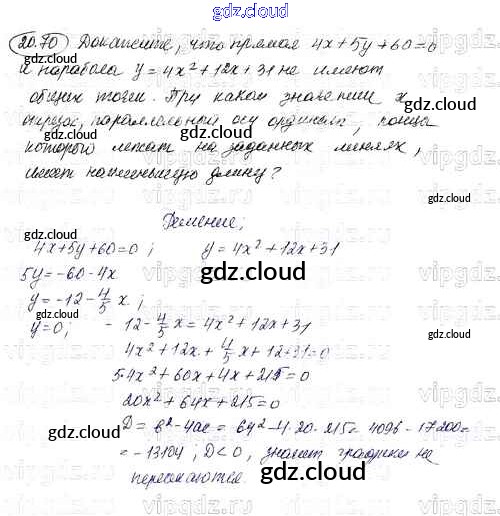 gdz.cloud
20.70 Докажите, что прямая 4x+5y+60=0
и парабола y=4x²+12x+31 не имеют
общих точек. При каком значении x
отрезок, параллельный оси ординат, концы
которого лежат на заданных линиях,
имеет наименьшую длину?
Решение;
4x+5y+60=0 ; y=4x²+12x+31
5y=-60-4x
y=-12-4/5 x ;
y=0; -12-4/5 x=4x²+12x+31
4x²+12x+4/5 x+12+31=0
5·4x²+60x+4x+215=0
20x²+64x+215=0
D=b²-4ac=64²-4·20·215=4096-17200=
=-13104 ; D<0, значит графики не
пересекаются.
gdz.cloud
gdz.cloud
gdz.cloud
gdz.cloud
gdz.cloud
gdz.cloud
gdz.cloud
gdz.cloud
gdz.cloud
gdz.cloud